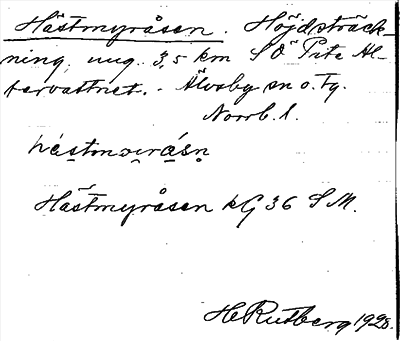 Hästmyråsen. Höjdsträck-
ning, ung. 3,5 km SÖ Pite Al-
tervattnet. - Älvsby sn o. Tg.
Norrb. l.
Hästmyråsen kG 36 S M.
H Rutberg 1928.